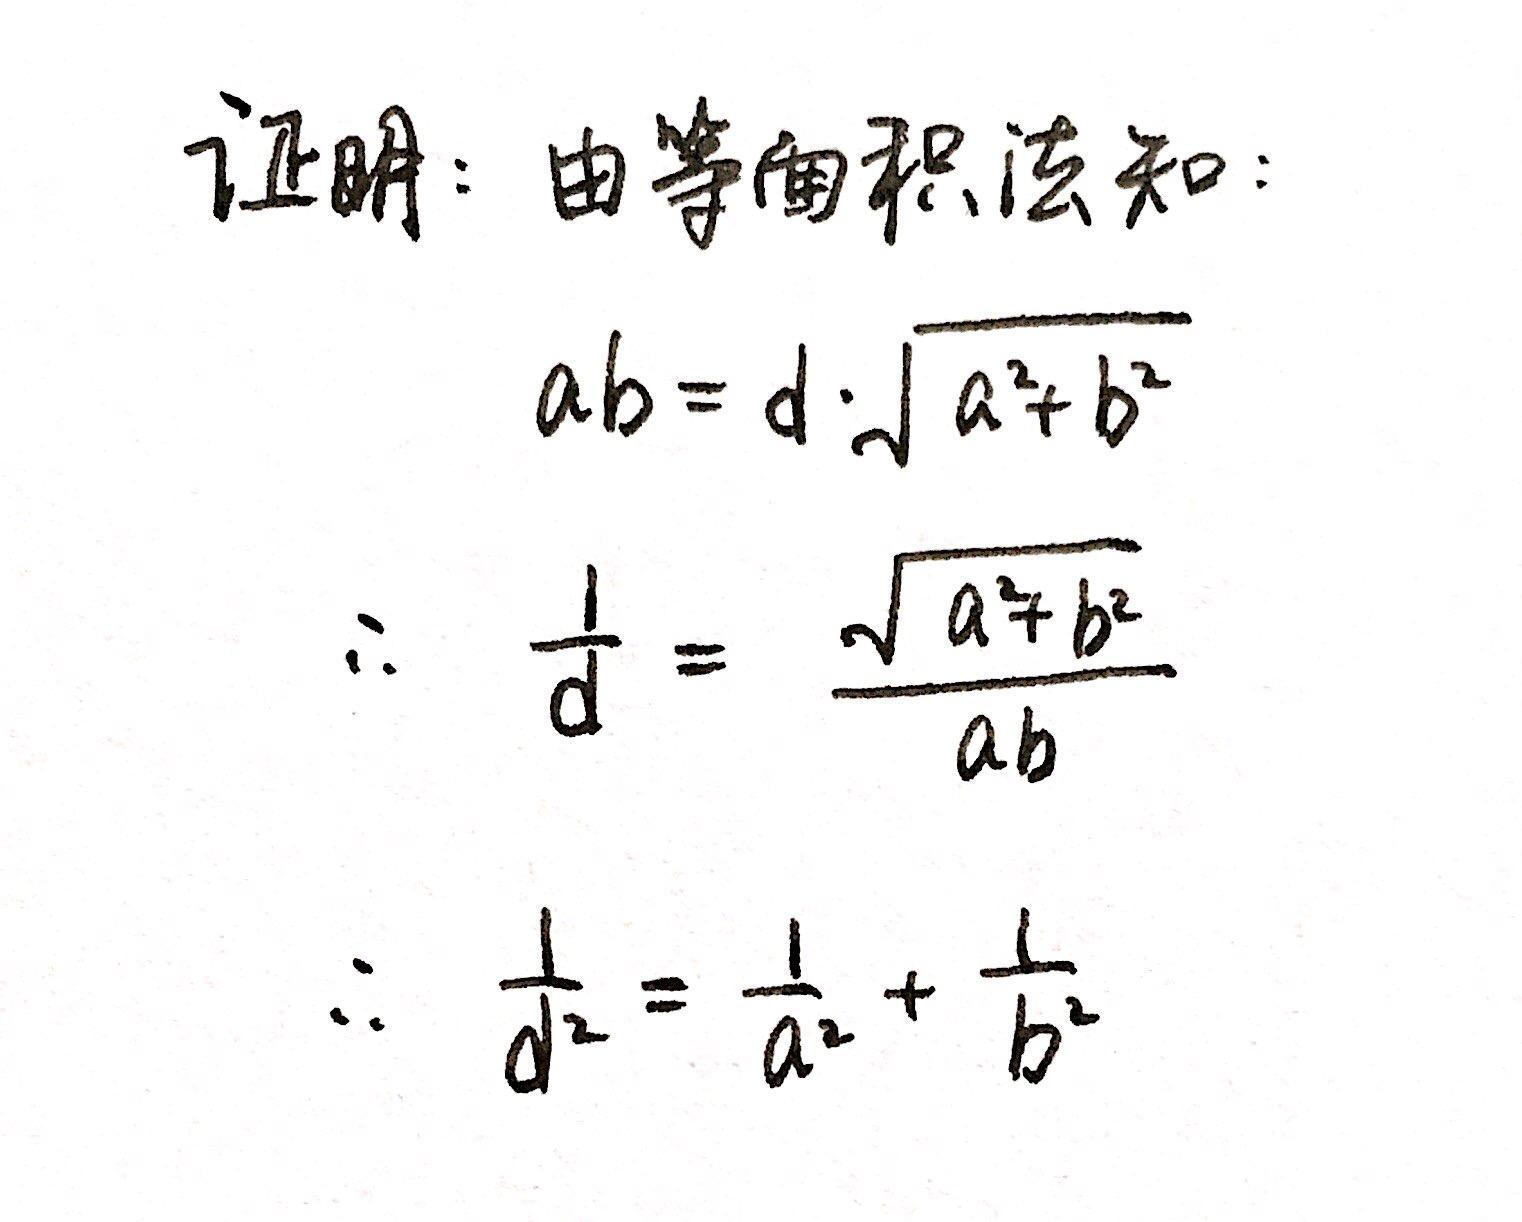 证明：由等面积法知：
ab = d·√(a²+b²)
∴ 1/d = √(a²+b²)/ab
∴ 1/d² = 1/a² + 1/b²